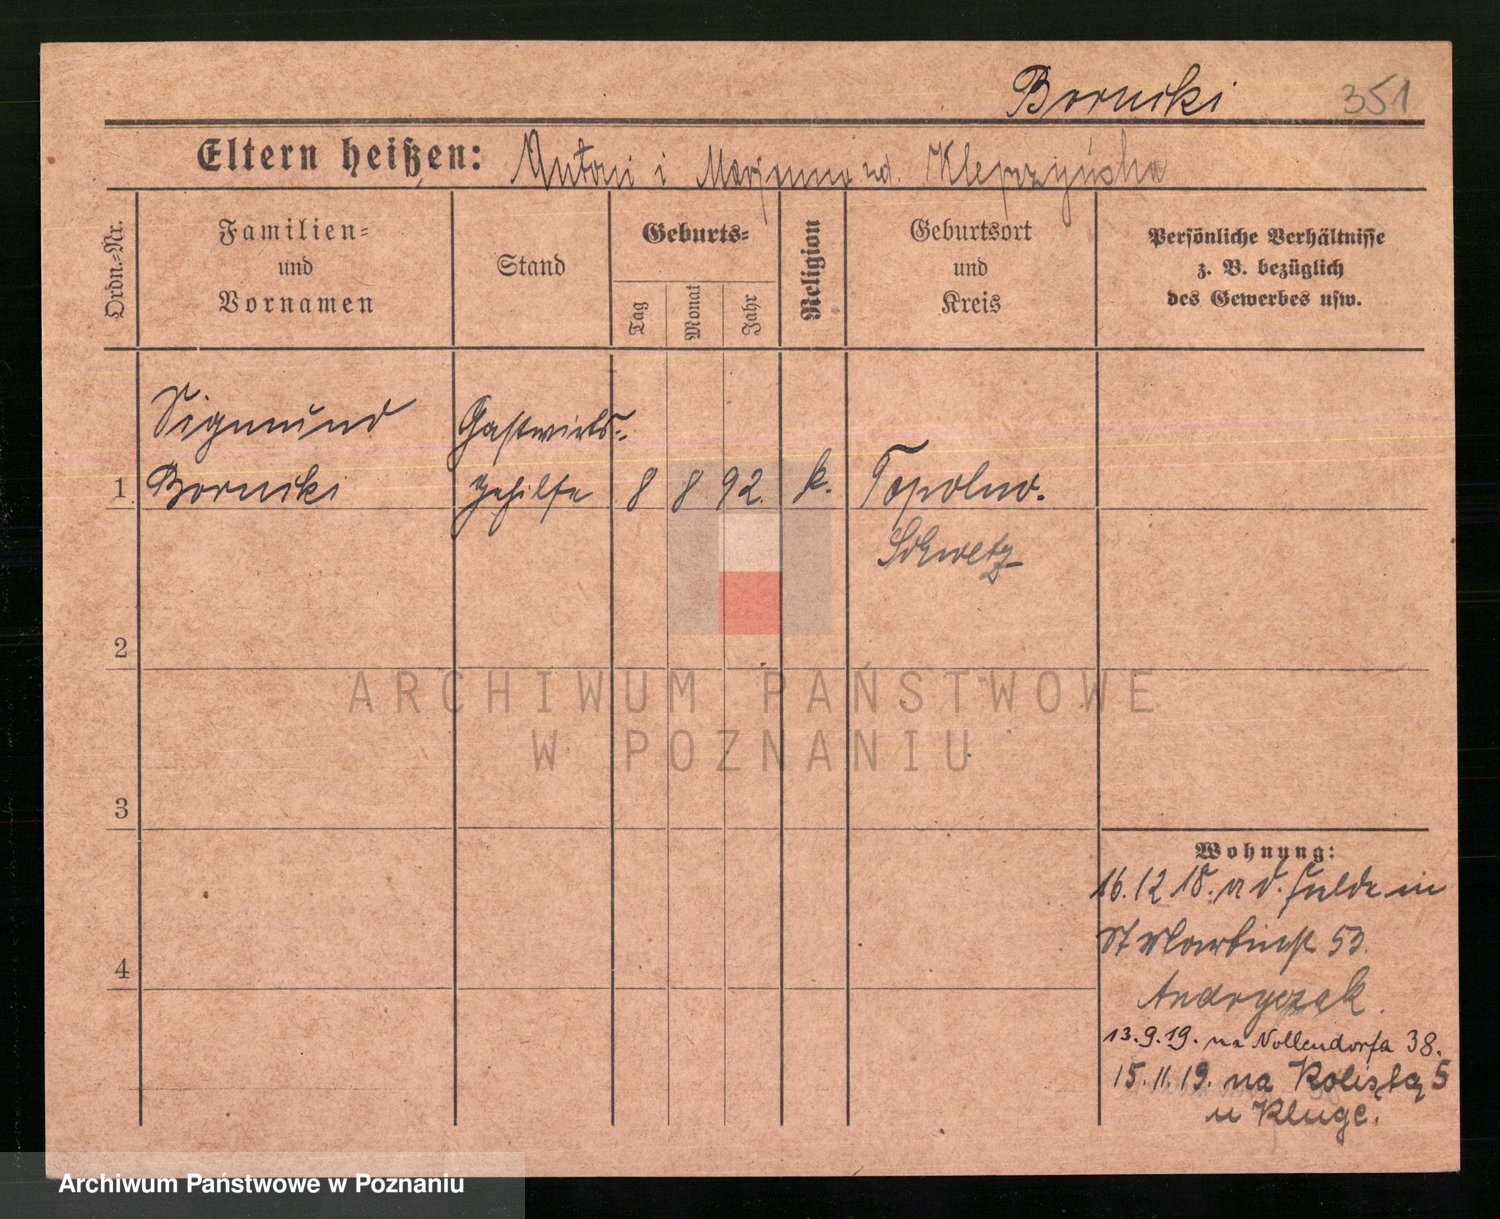 Bornski 351
Eltern heißen: Antoni i Marjanna zd. Klepczyńska
Ordn.-Nr.
Familien-
und
Vornamen
Stand
Geburts-
Tag
Monat
Jahr
Religion
Geburtsort
und
Kreis
Persönliche Verhältnisse
z. B. bezüglich
des Gewerbes usw.
Sigmund Gastwirts-
1 Bornski gehilfe 8 8 92. k. Topolno.
Schwetz
2
ARCHIWUM PAŃSTWOWE
W POZNANIU
3
Wohnung:
16.12 18. v. d. Fulde in
St Martinst 53.
Andryczak.
4
13.9.19. na Nollendorfa 38.
15.11.19. na Kolistą 5
u Kluge.
Archiwum Państwowe w Poznaniu